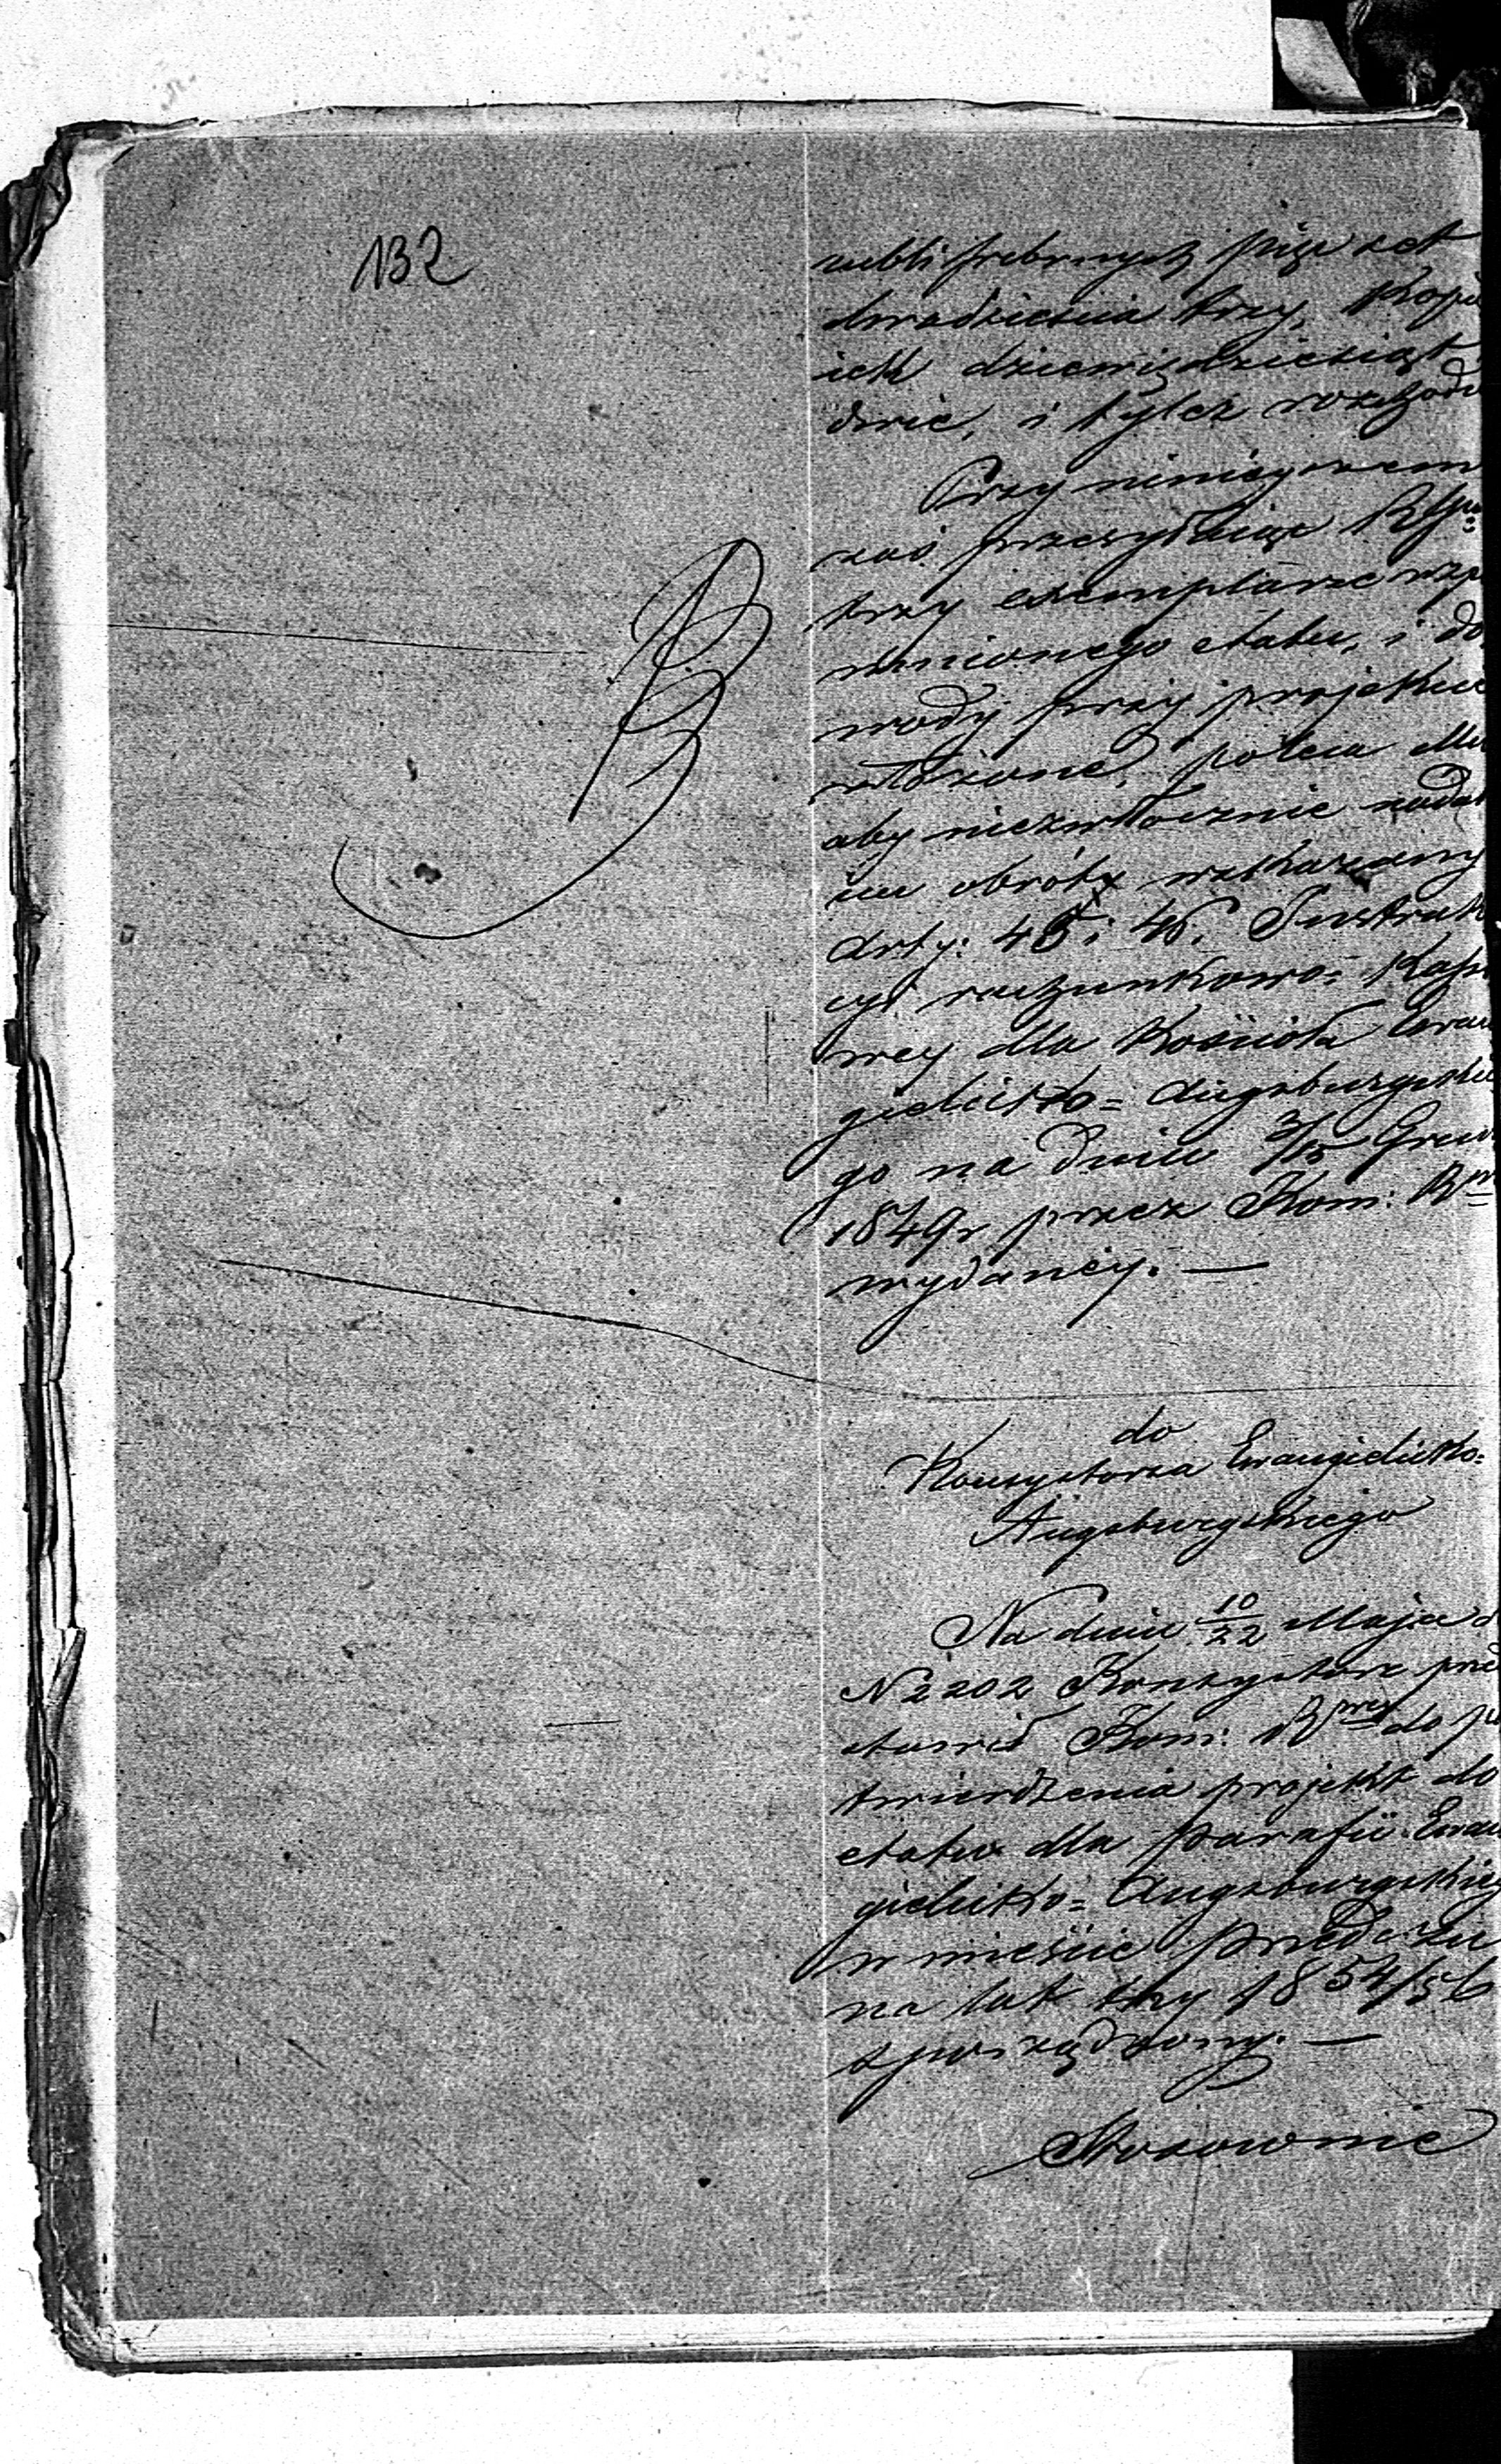 132
rubli srebrnych pięć set
dwadzieścia trzy, Kopi
iek dziewięćdziesiąt
dwie, i tyleż rozchodu
Przy niniejszem
zaś przesyłając
trzy exemplarze wspo
mnionego etatu, i do
wody przy projekcie
złożone, poleca
aby niezwłocznie nadał
im obrót wskazany
Arty: 45 i 46. Instruk
cyi rachunkowo= Kasso
wey dla Kościoła Ewan
gielicko= Augsburgskie
go na dniu 3/15 Grud
1849r przez Kom: R
wydaney. —
do
Konsystorza Ewangielicko=
Augsburgskiego
Na dniu 10/22 Maja
N 2202 Konsystorz przed
stawił Kom: R do po
twierdzenia projekt do
etatu dla parafii Ewan
gielicko= Augsburgskiej
w mieście Przedczu
na lat trzy 1854/56
sporządzony. —
Stosownie